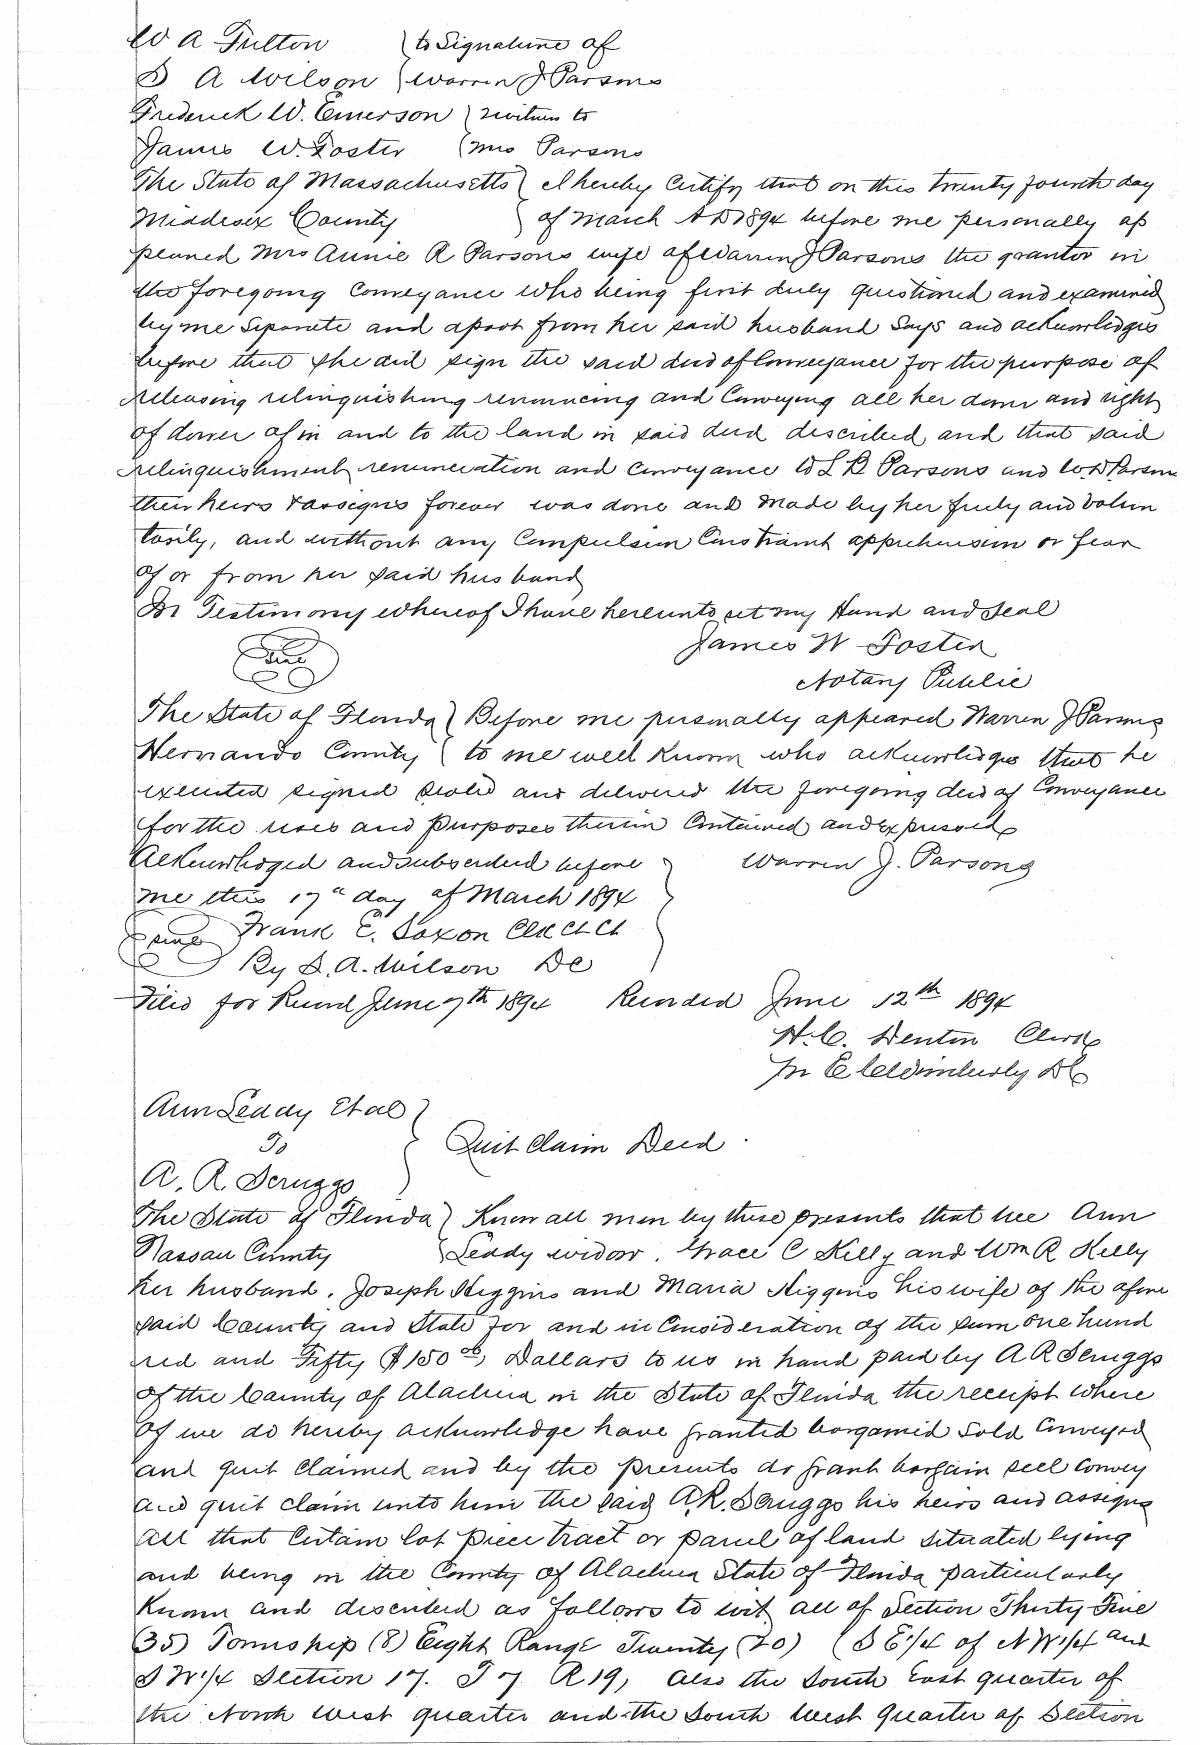 W A Fulton } to Signature of
S A Wilson } Warren J Parsons
Frederick W. Emerson } witness to
James W. Foster } Mrs Parsons
The State of Massachusetts } I hereby Certify that on this twenty fourth day
Middlesex County } of March A D 1894 before me personally ap
peared Mrs Annie R Parsons wife of Warren J Parsons the grantor in
the foregoing Conveyance who being first duly questioned and examined
by me Separate and apart from her said husband Says and acknowledges
before that she did sign the said deed of Conveyance for the purpose of
releasing relinquishing renouncing and Conveying all her dower and right
of dower of in and to the land in said deed described and that said
relinquishment renunciation and conveyance to L B Parsons and W. D. Parsons
their heirs & assigns forever was done and made by her freely and volun
tarily, and without any Compulsion Constraint apprehension or fear
of or from her said husband
In Testimony whereof I have hereunto set my Hand and Seal
James W Foster
Seal
Notary Public
The State of Florida } Before me personally appeared Warren J Parsons
Hernando County } to me well Known who acknowledges that he
executed signed sealed and delivered the foregoing deed of Conveyance
for the uses and purposes therein Contained and expressed
Acknowledged and subscribed before } Warren J. Parsons
me this 17th day of March 1894
Seal Frank E. Saxon Clk Ct Ct
By S. A. Wilson D C
Filed for Record June 7th 1894 Recorded June 12th 1894
H. C. Denton Clerk
M E C Wimberly D C
Ann Leddy Et al }
To } Quit Claim Deed.
A. R. Scruggs
The State of Florida } Know all men by these presents that we Ann
Nassau County } Leddy widow. Grace C Kelly and Wm R Kelly
her husband. Joseph Higgins and Maria Higgins his wife of the afore
said County and State for and in Consideration of the sum one hund
red and Fifty $150 00 Dollars to us in hand paid by A R Scruggs
of the County of Alachua in the State of Florida the receipt where
of we do hereby acknowledge have granted bargained Sold Conveyed
and quit claimed and by the presents do grant bargain sell convey
and quit claim unto him the said A. R. Scruggs his heirs and assigns
all that Certain lot piece tract or parcel of land situated lying
and being in the County of Alachua State of Florida particularly
Known and described as follows to wit all of Section Thirty Five
(35) Township (8) Eight Range Twenty (20) (S E 1/4 of N W 1/4 and
S W 1/4 Section 17. T 7 R 19, Also the South East quarter of
the North West quarter and the South West Quarter of Section